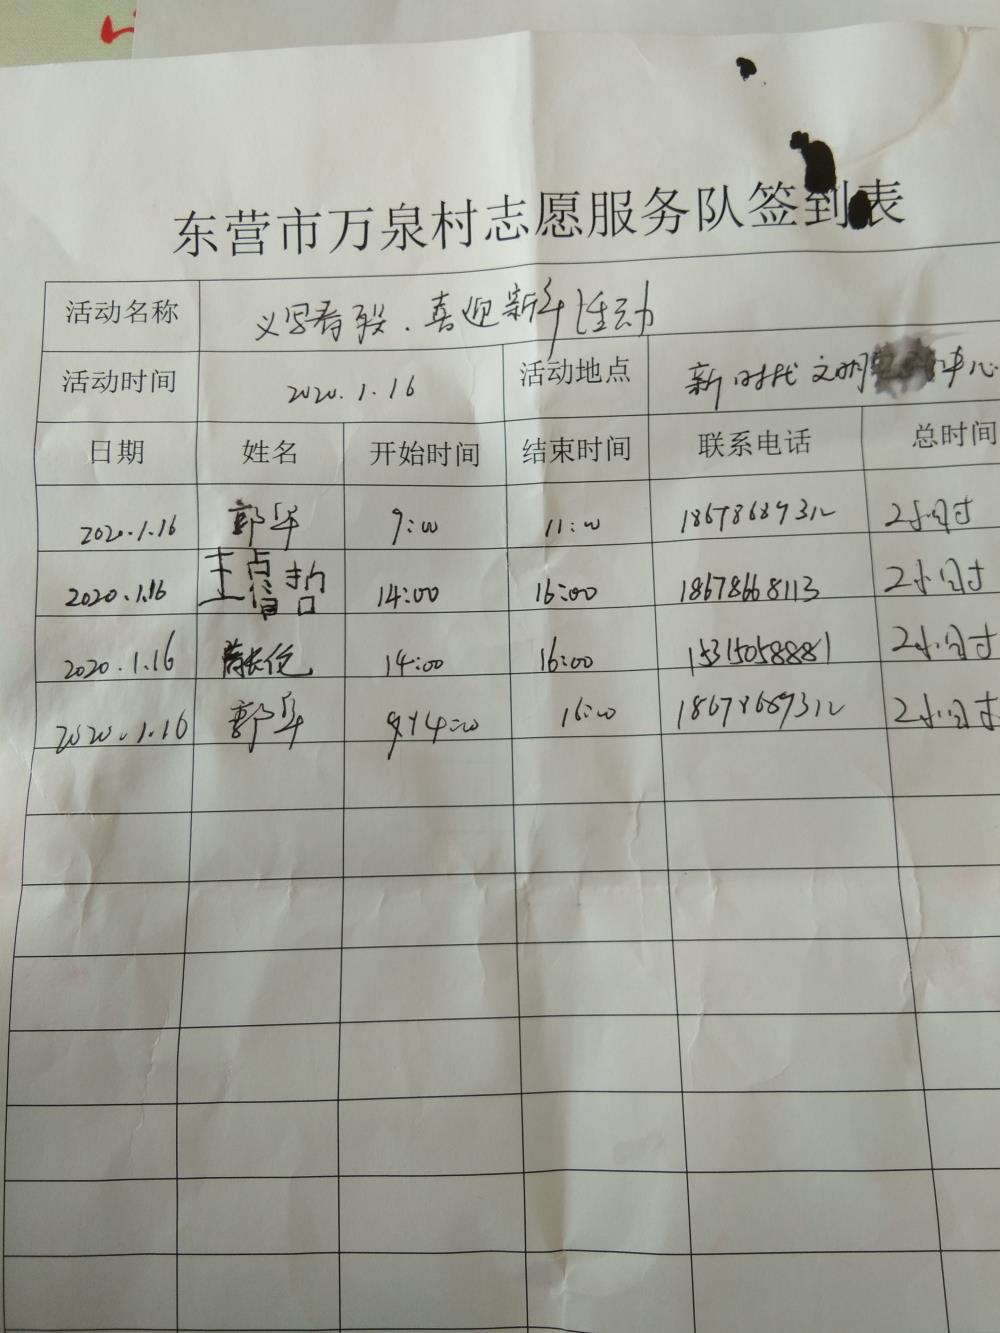 东营市万泉村志愿服务队签到表
活动名称 义写春联.喜迎新年活动
活动时间 2020.1.16 活动地点 新时代文明 中心
日期 姓名 开始时间 结束时间 联系电话 总时间
2020.1.16 郭华 9:00 11:00 18678689312 2小时
2020.1.16 14:00 16:00 18678668113 2小时
2020.1.16 14:00 16:00 15315058881 2小时
2020.1.16 郭华 14:00 16:00 18678689312 2小时